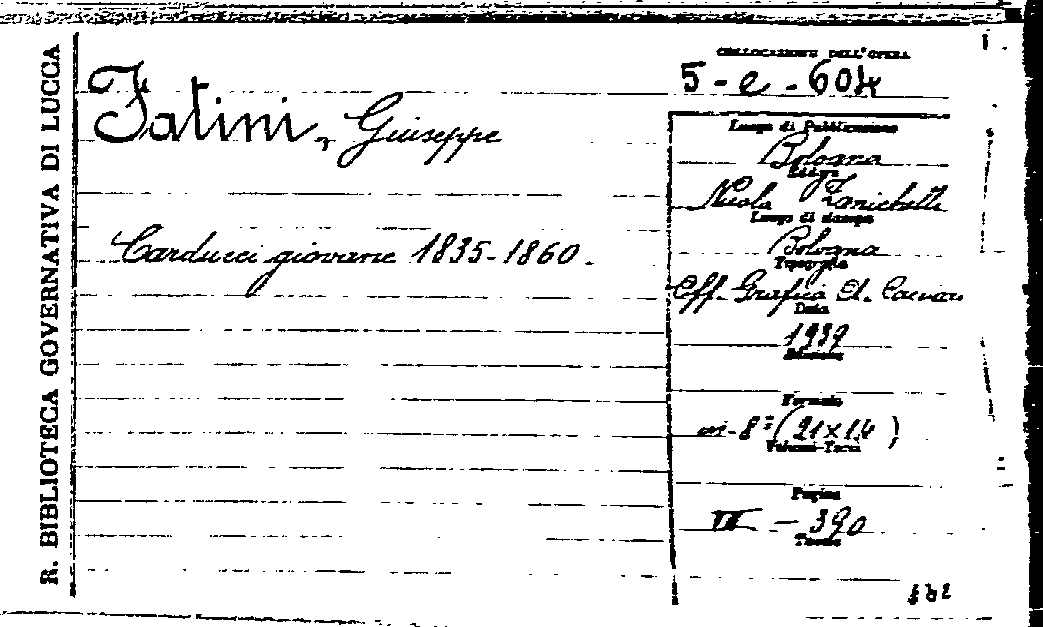 R. BIBLIOTECA GOVERNATIVA DI LUCCA
Fatini, Giuseppe
Carducci giovane 1835-1860.
COLLOCAZIONE DELL'OPERA
5-e-604
Luogo di Pubblicazione
Bologna
Editore
Nicola Zanichelli
Luogo di stampa
Bologna
Tipografia
Off. Grafica A. Cacciari
Data
1939
Edizione
Formato
in-8° (21x14)
Volumi-Tomi
Pagine
390
Tavole